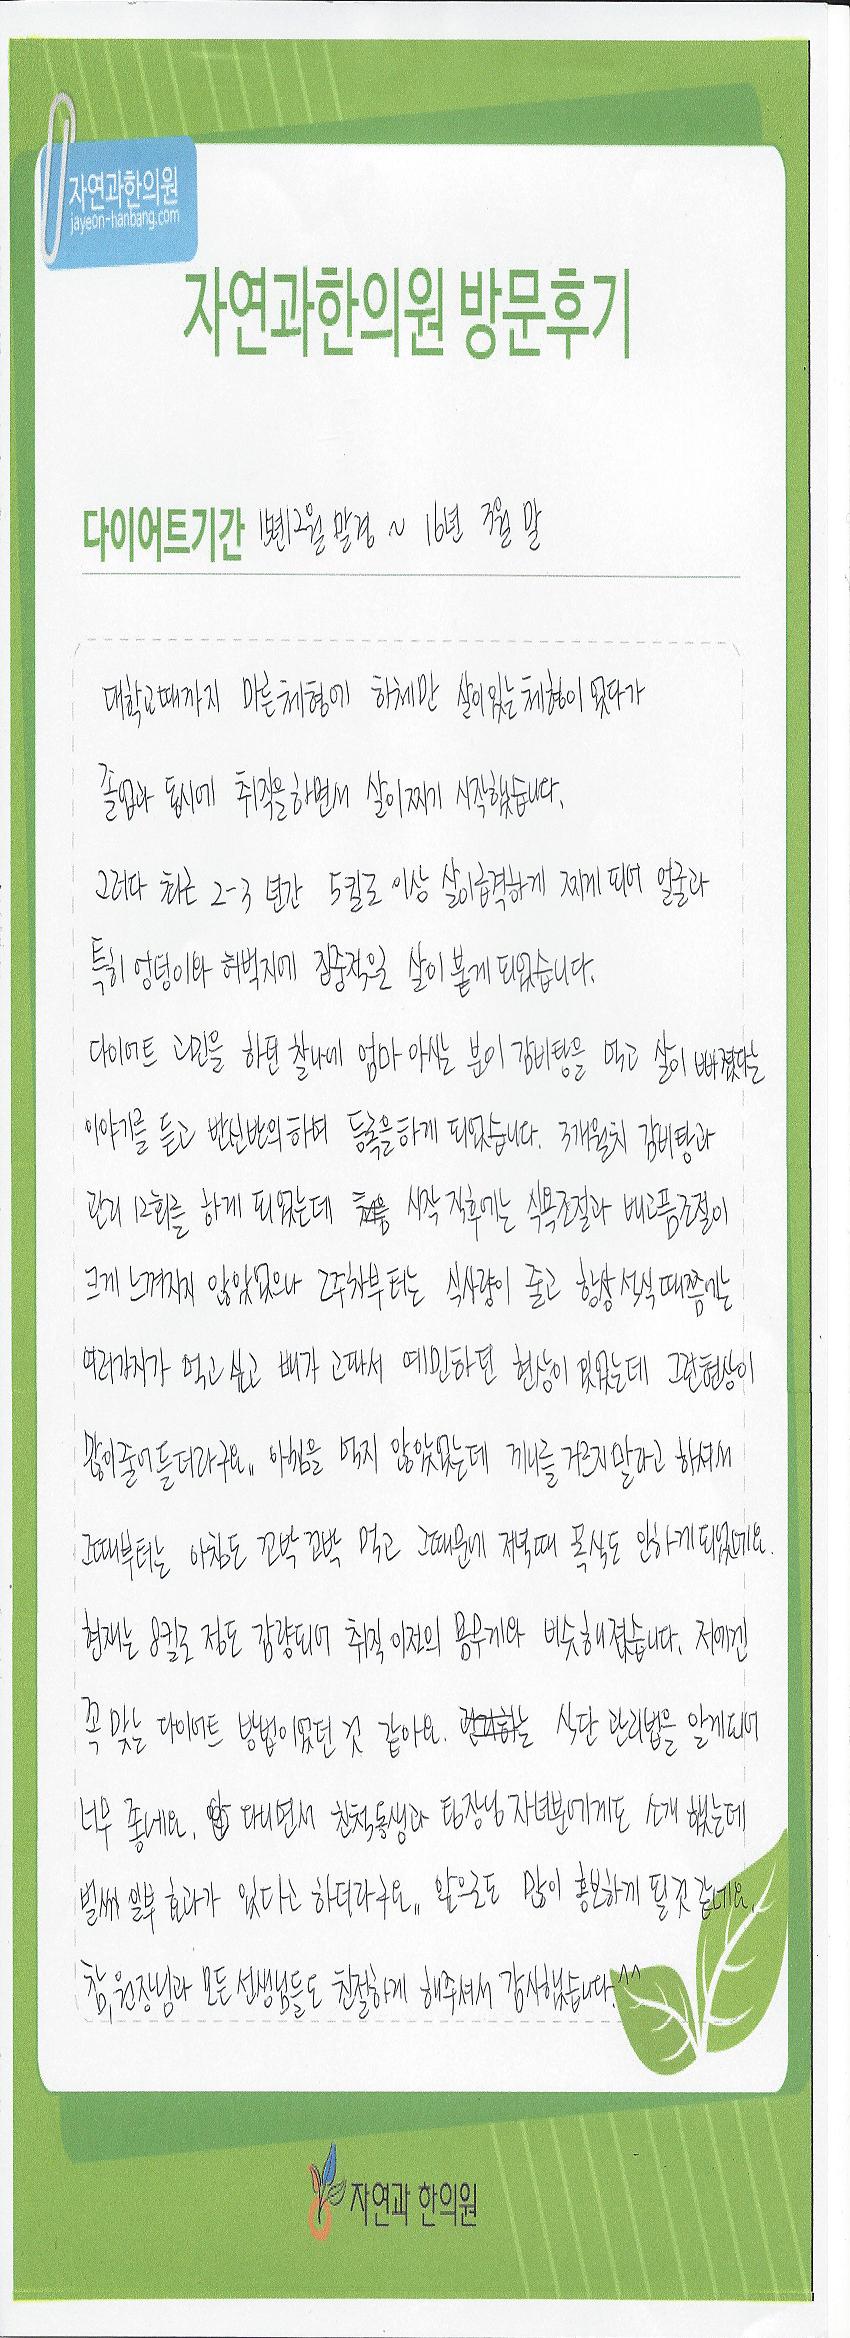 자연과한의원
jayeon-hanbang.com
자연과한의원 방문후기
다이어트기간 15년12월 말경 ~ 16년 3월 말
대학교때까지 마른체형에 하체만 살이있는체형이 었다가
졸업과 동시에 취직을하면서 살이찌기 시작했습니다.
그러다 최근 2-3 년간 5킬로 이상 살이급격하게 찌게 되어 얼굴과
특히 엉덩이와 허벅지에 집중적으로 살이 붙게 되었습니다.
다이어트 고민을 하던 찰나에 엄마 아시는 분이 감비탕을 먹고 살이 빠졌다는
이야기를 듣고 반신반의하며 등록을하게 되었습니다. 3개월치 감비탕과
관리 12회를 하게 되었는데 시작 직후에는 식욕조절과 배고픔조절이
크게 느껴지지 않았었으나 2주차부터는 식사량이 줄고 항상 석식때쯤에는
여러가지가 먹고싶고 배가 고파서 예민하던 현상이 있었는데 그런현상이
많이줄어들더라구요,, 아침을 먹지 않았었는데 끼니를 거르지말라고 하셔서
그때부터는 아침도 꼬박꼬박 먹고 그때문에 저녁때 폭식도 안하게되었네요.
현재는 8킬로 정도 감량되어 취직 이전의 몸무게와 비슷해졌습니다. 저에겐
꼭 맞는 다이어트 방법이었던 것 같아요. 식단 관리법을 알게되어
너무 좋네요. 다니면서 친척동생과 팀장님 자녀분에게도 소개 했는데
벌써 일부 효과가 있다고 하더라구요,, 앞으로도 많이 홍보하게 될것 같네요.
참, 원장님과 모든 선생님들도 친절하게 해주셔서 감사했습니다.^^
자연과 한의원